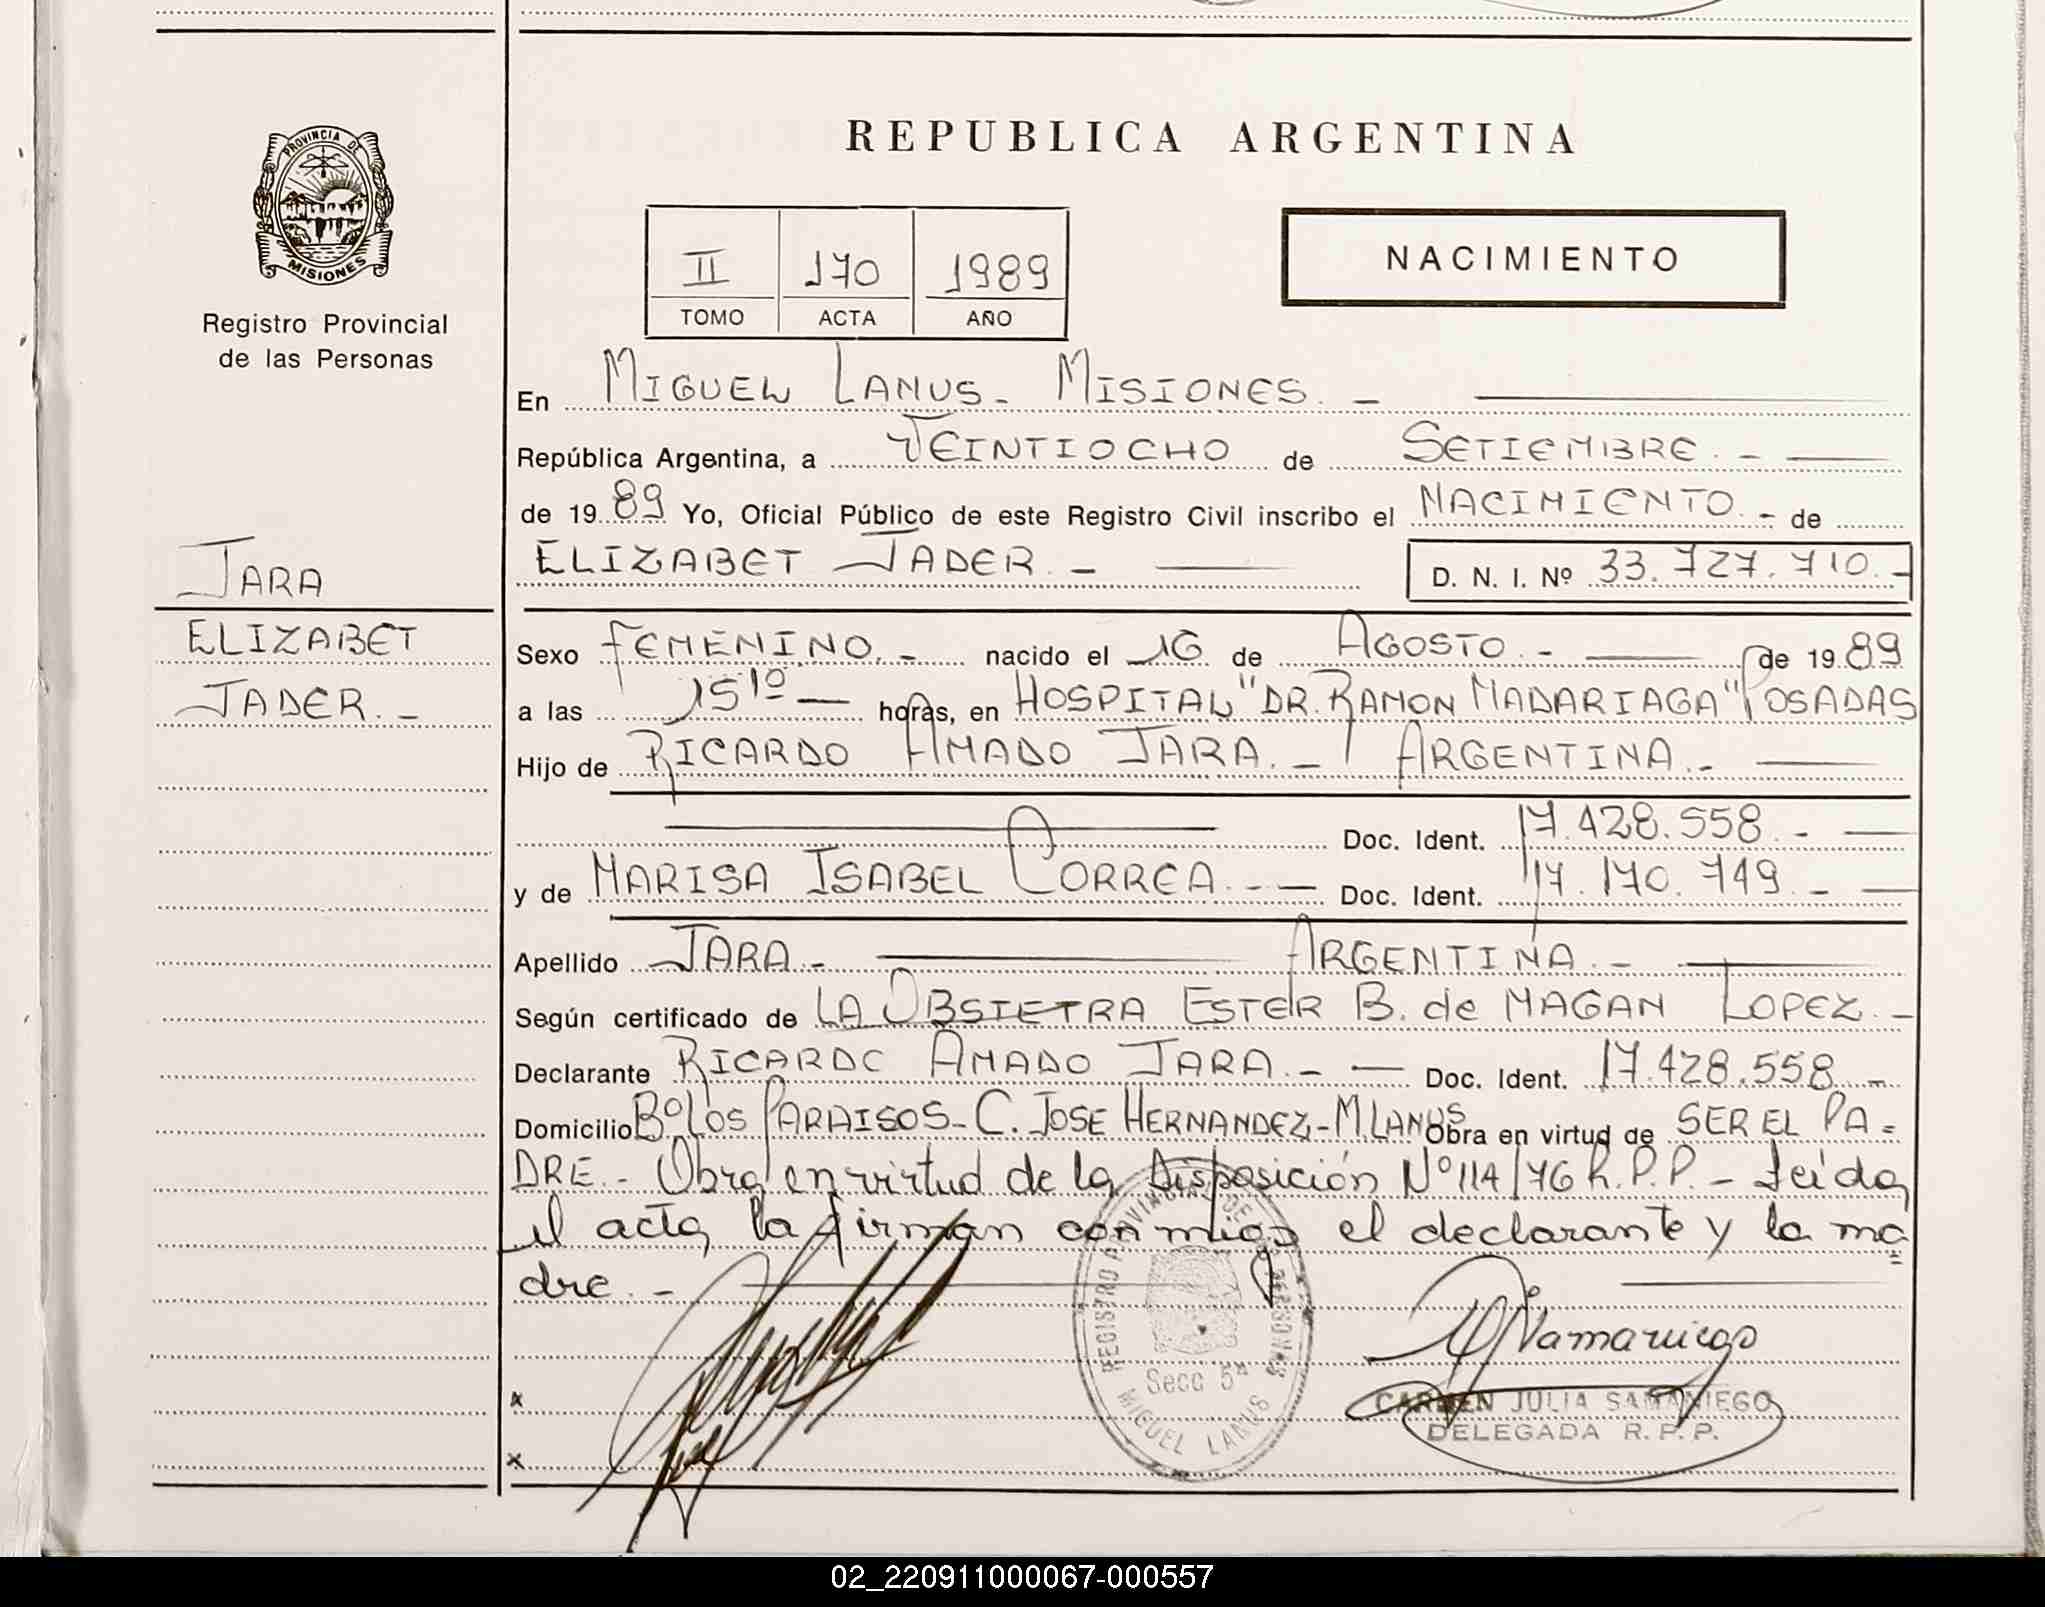 PROVINCIA DE
MISIONES
Registro Provincial
de las Personas
JARA
ELIZABET
JADER.-
REPUBLICA ARGENTINA
II 170 1989
TOMO ACTA AÑO
NACIMIENTO
En MIGUEL LANUS- MISIONES.-
República Argentina, a VEINTIOCHO de SETIEMBRE.-
de 1989 Yo, Oficial Público de este Registro Civil inscribo el NACIMIENTO.- de
ELIZABET JADER.- D. N. I. Nº 33.727.710.-
Sexo FEMENINO.- nacido el 16 de AGOSTO.- de 1989
a las 15 10 horas, en HOSPITAL "DR. RAMON MADARIAGA" POSADAS
Hijo de RICARDO AMADO JARA.- ARGENTINA.-
Doc. Ident. 17.428.558.-
y de MARISA ISABEL CORREA.- Doc. Ident. 17.170.749.-
Apellido JARA.- ARGENTINA.-
Según certificado de LA OBSTETRA ESTER B. de MAGAN LOPEZ.-
Declarante RICARDO AMADO JARA.- Doc. Ident. 17.428.558.-
Domicilio Bº LOS PARAISOS- C. JOSE HERNANDEZ-M.LANUS Obra en virtud de SER EL PA=
DRE.- Obra en virtud de la Disposición Nº 114/76 R.P.P.- Leída
el acta, la firman conmigo el declarante y la ma=
dre.-
REGISTRO PROVINCIAL DE LAS PERSONAS
Secc 5ª
MIGUEL LANUS
x
x
CARMEN JULIA SAMANIEGO
DELEGADA R.P.P.
02_220911000067-000557